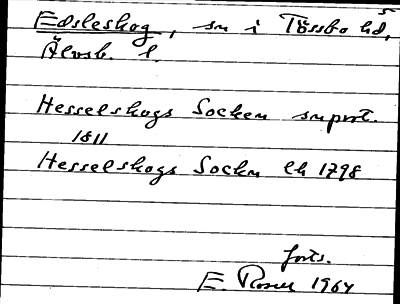 Edsleskog, sn i Tössbo hd,
Älvsb. l.
Hesselskogs Socken snprot.
1811
Hesselskogs Sockn Eh 1798
forts.
E. 1964